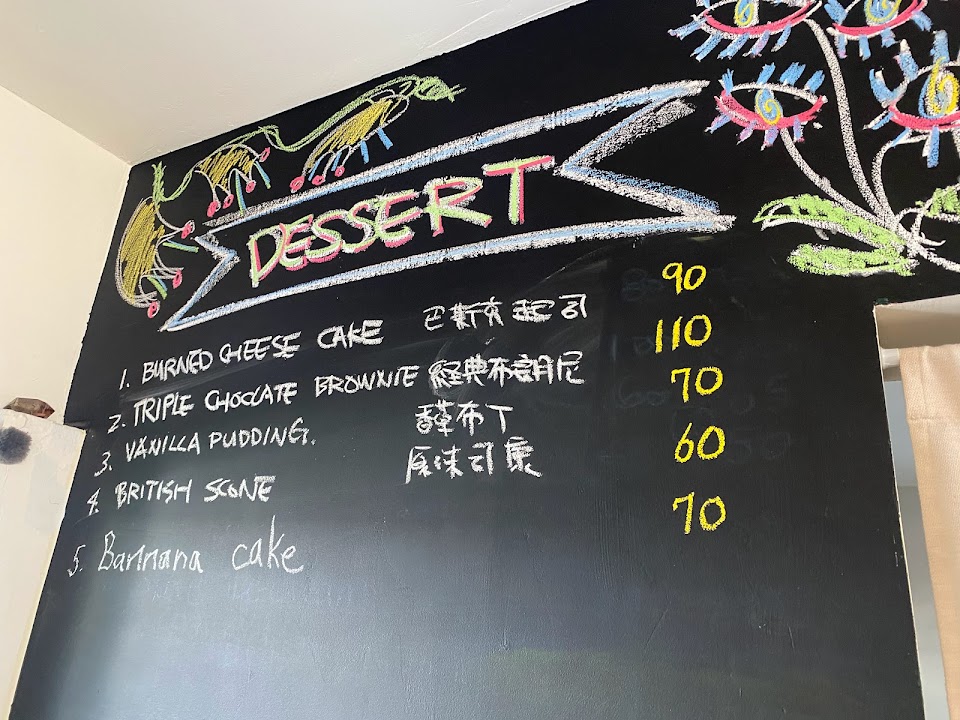 DESSERT
1. BURNED CHEESE CAKE 巴斯克起司 90
2. TRIPLE CHOCLATE BROWNIE 經典布朗尼 110
3. VANILLA PUDDING. 香草布丁 70
4. BRITISH SCONE 原味司康 60
5. Bannana cake 70